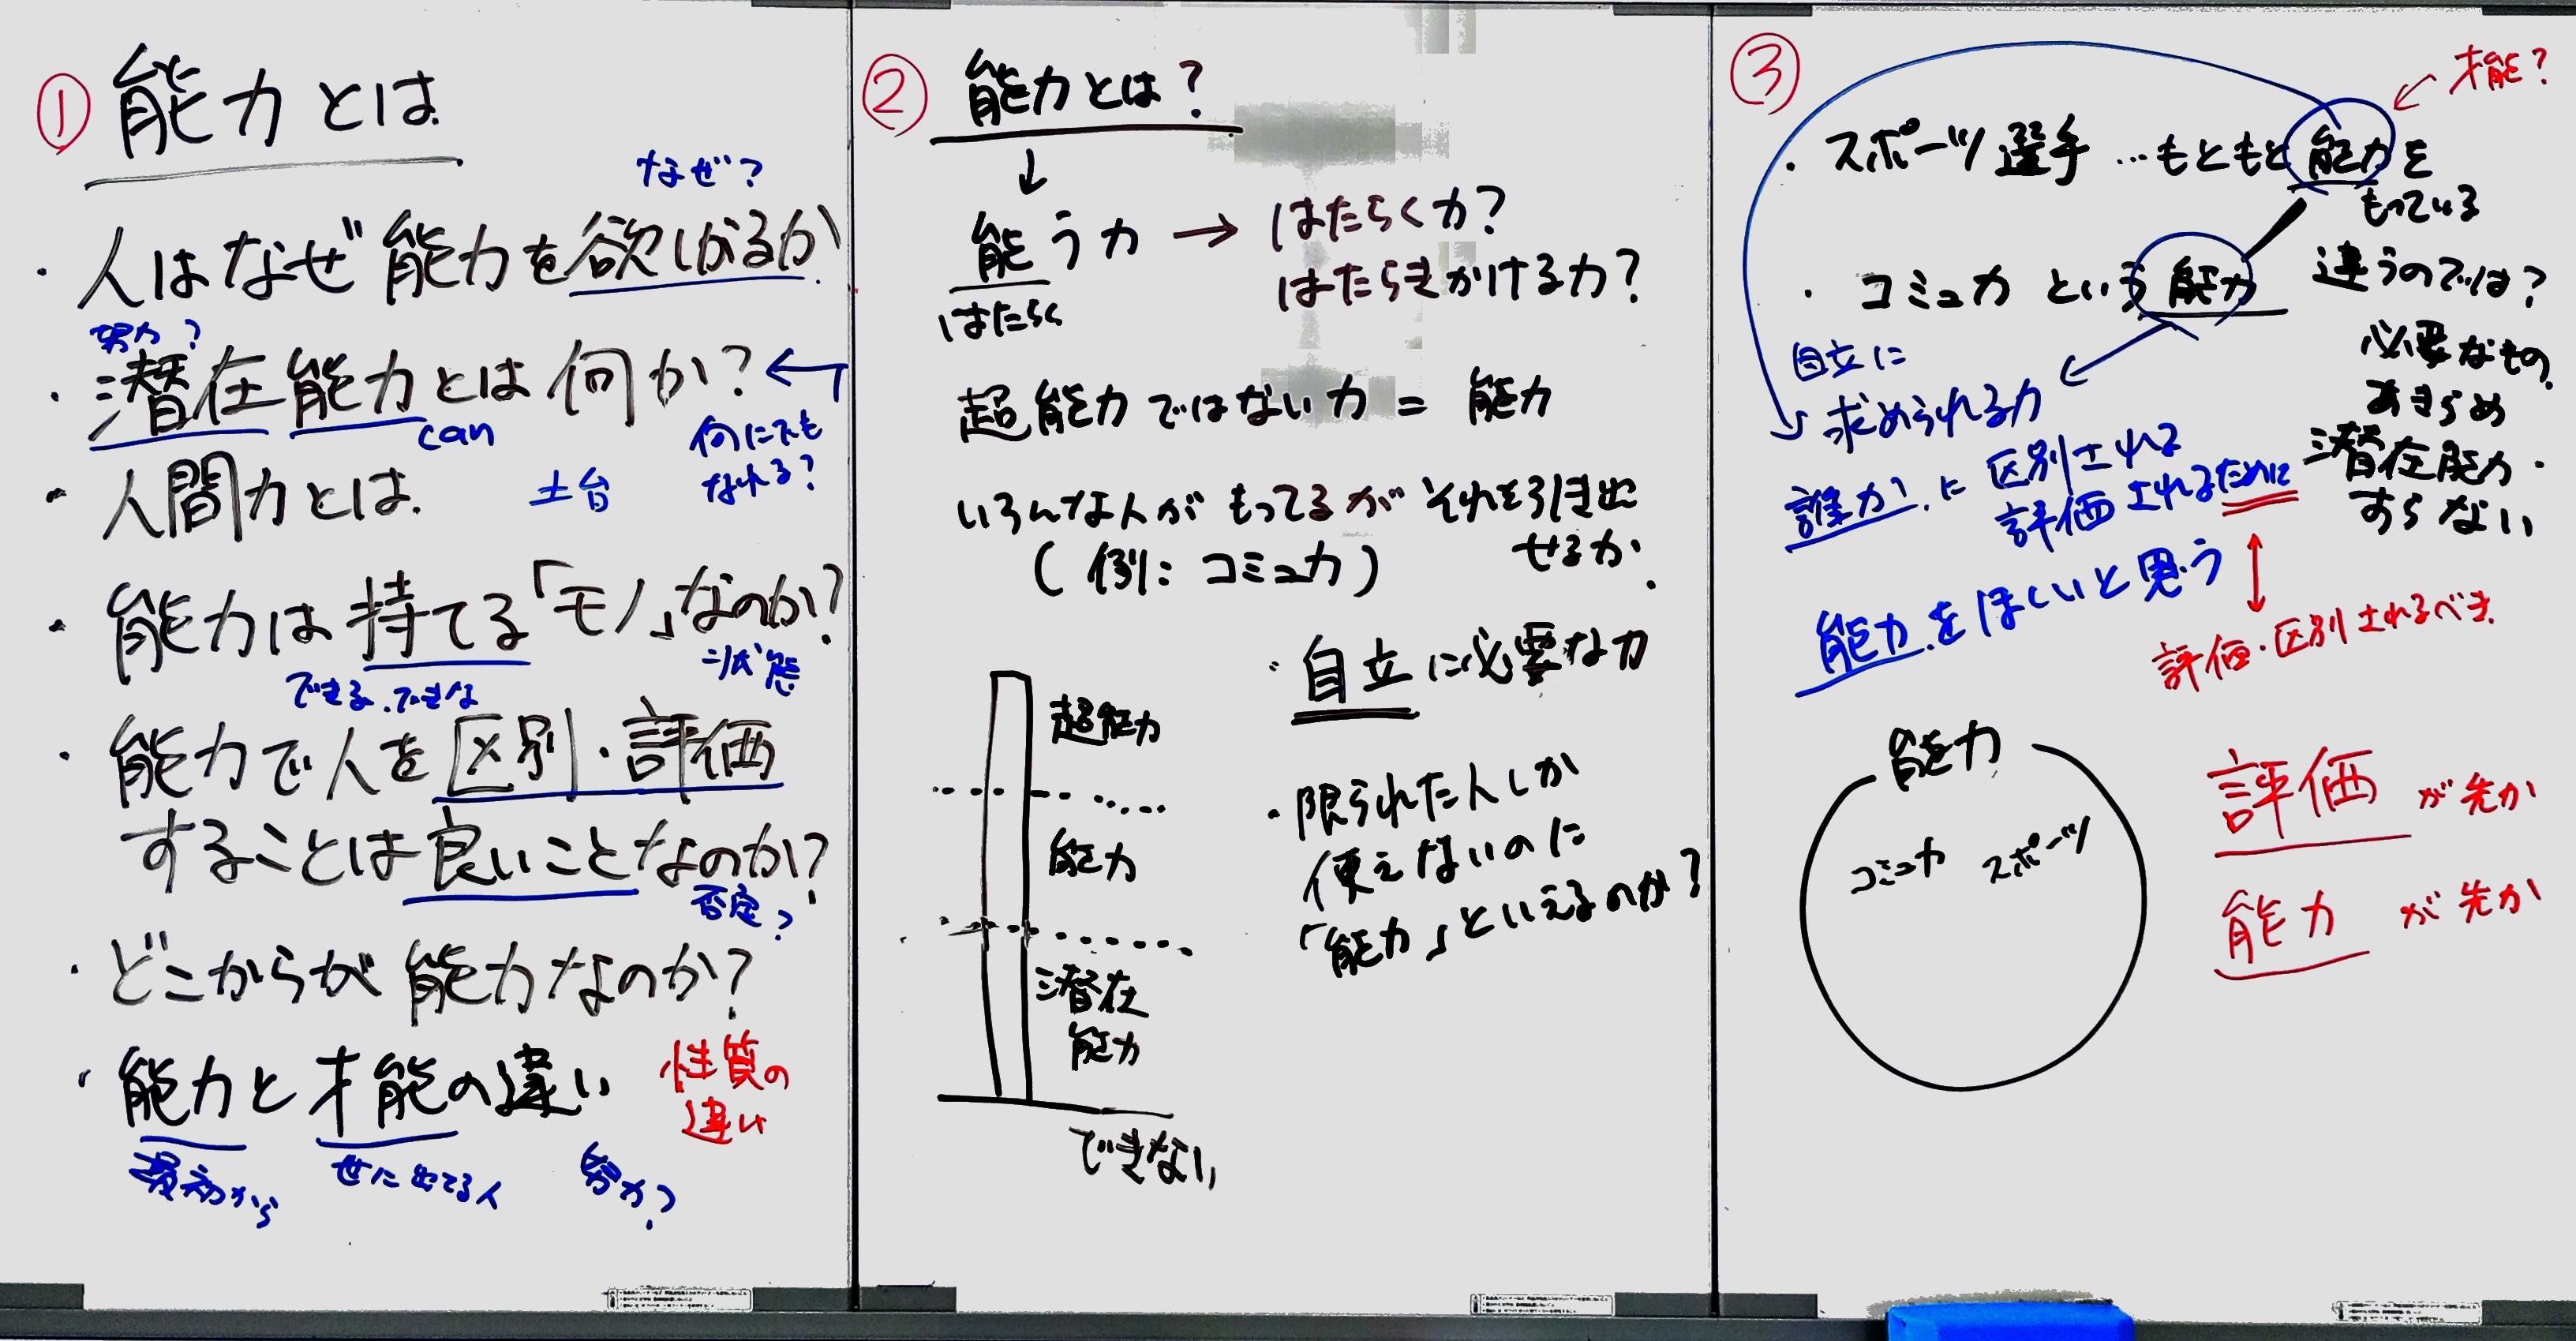 ① 能力とは
なぜ?
・人はなぜ能力を欲しがるか
努力?
・潜在能力とは何か?
can
何にでも
なれる?
・人間力とは
土台
・能力は持てる「モノ」なのか?
できる、できな
状態
・能力で人を区別・評価
することは良いことなのか?
否定?
・どこからが能力なのか?
・能力と才能の違い
性質の
違い
最初から
せに出てる人
努力?
② 能力とは?
能う力 → はたらく力?
はたらく
はたらきかける力?
超能力ではない力 = 能力
いろんな人がもってるがそれを引き出
せるか.
(例: コミュ力)
超能力
能力
潜在
能力
できない
・自立に必要な力
・限られた人しか
使えないのに
「能力」といえるのか?
③
才能?
・スポーツ選手…もともと能力を
もっている
・コミュ力という能力
違うのでは?
必要なもの
あきらめ
潜在能力.
すらない
自立に
求められる力
誰かに区別される
評価されるために
能力をほしいと思う
評価・区別されるべき
能力
コミュ力 スポーツ
評価が先か
能力が先か